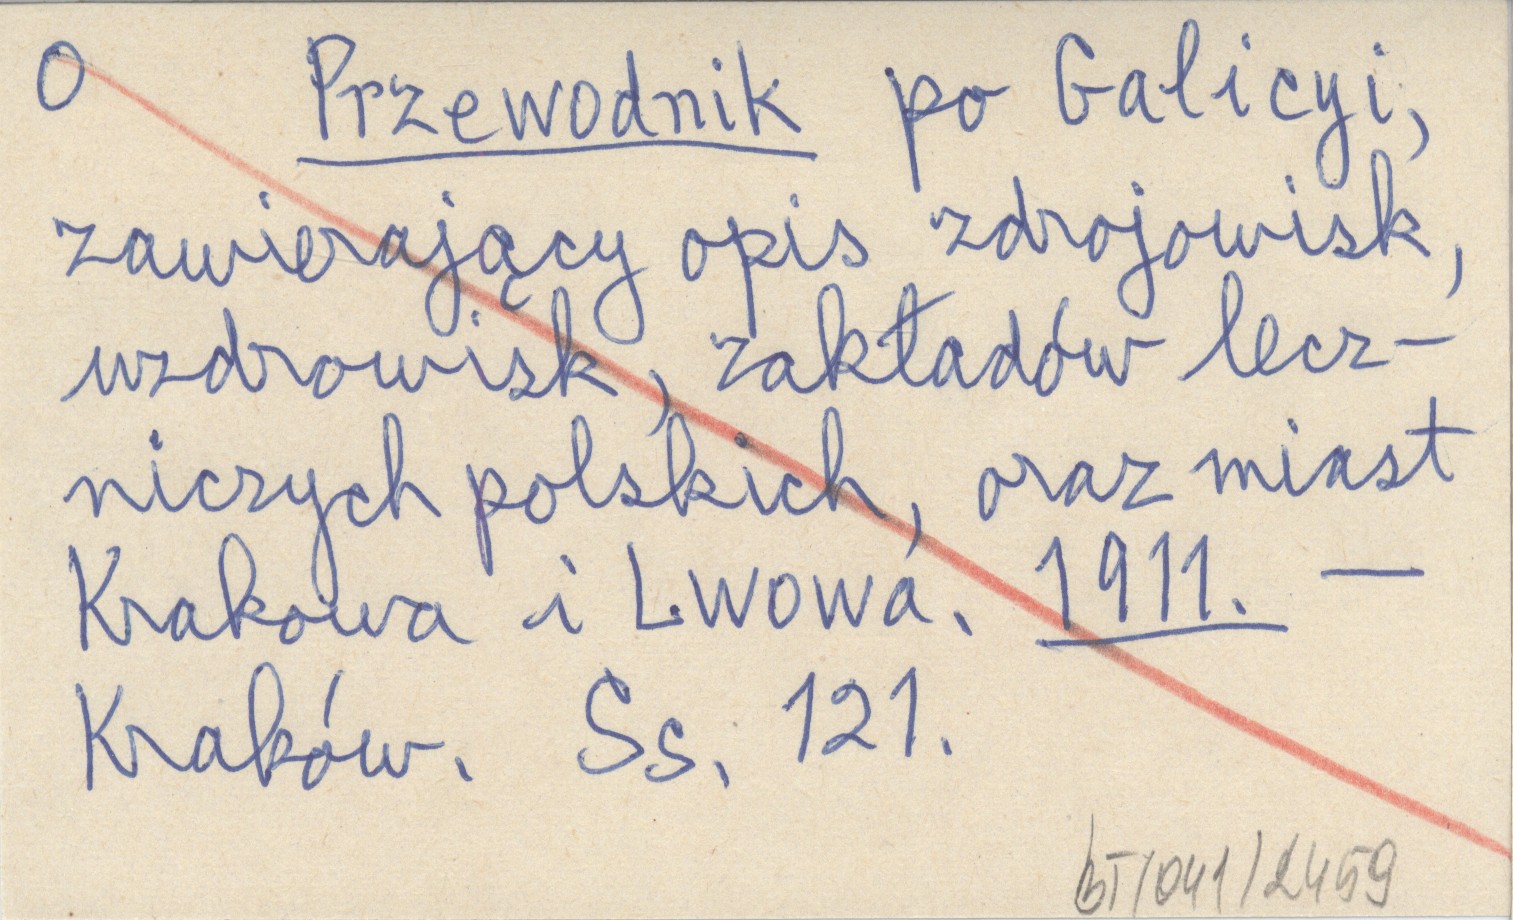 O Przewodnik po Galicyi,
zawierający opis zdrojowisk,
uzdrowisk, zakładów lecz-
niczych polskich, oraz miast
Krakowa i Lwowa. 1911. —
Kraków. Ss. 121.
bT/041/2459